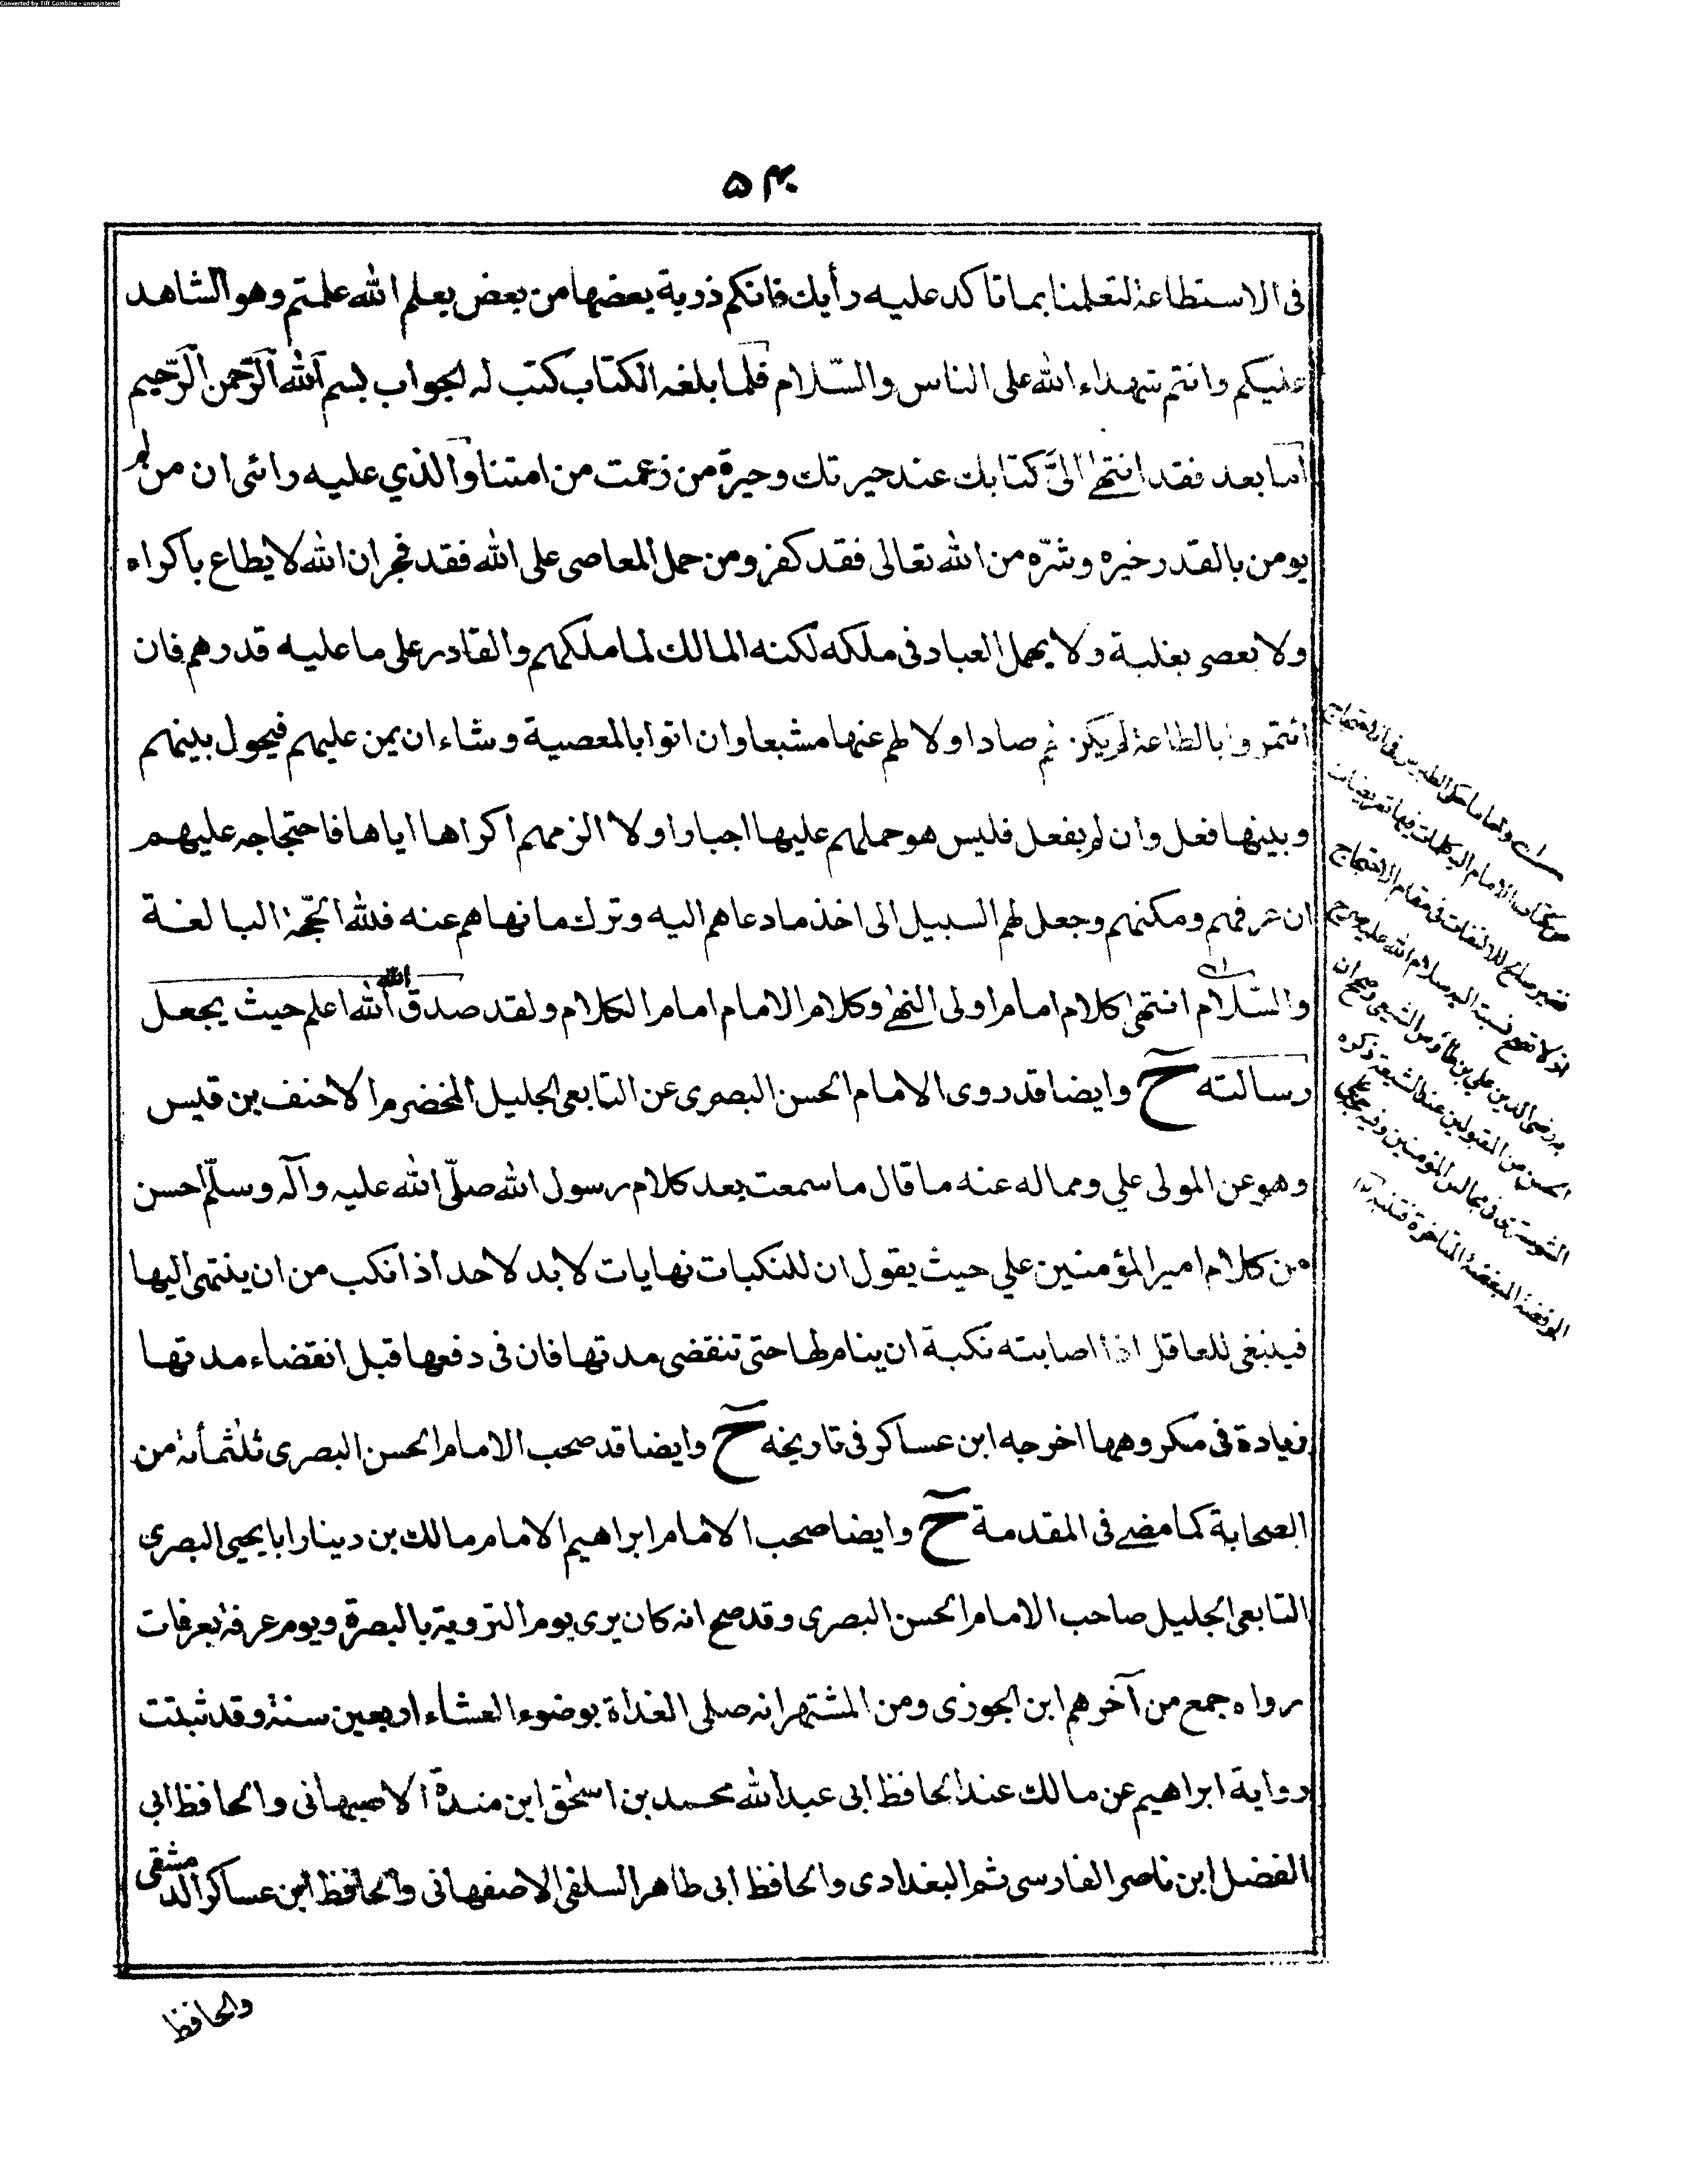 Converted by Tiff Combine - unregistered
٥٤
فى الاستطاعة لتعلمنا بما تأكد عليه رأيك فانكم ذرية بعضها من بعض يعلم الله علمتم وهو الشاهد
عليكم وانتم شهداء الله على الناس والسّلام فلما بلغه الكتاب كتب له الجواب بسم الله الرّحمن الرّحيم
اما بعد فقد انتهى الىّ كتابك عند حيرتك وحيرة من زعمت من امتنا والذي عليه رائى ان من لم
يومن بالقدر خيره وشرّه من الله تعالى فقد كفر ومن حمل المعاصى على الله فقد فجر ان الله لا يطاع باكراه
ولا يعصى بغلبة ولا يهمل العباد فى ملكه لكنه المالك لما ملكهم والقادر على ما عليه قدرهم فان
ائتمروا بالطاعة لم يكن لهم صادا ولا لهم عنها مشبعا وان اتوا بالمعصية وشاء ان يمن عليهم فيحول بينهم
وبينها فعل وان لم يفعل فليس هو حملهم عليها اجبارا ولا الزمهم اكراها اياها فاحتجاجه عليهم
ان عرفهم ومكنهم وجعل لهم السبيل الى اخذ ما دعاهم اليه وترك ما نهاهم عنه فلله الحجّة البالغة
والسّلام انتهى كلام امام اولى النهى وكلام الامام امام الكلام ولقد صدق الله الله اعلم حيث يجعل
رسالته ح وايضا قد روى الامام الحسن البصرى عن التابعى الجليل المخضرم الاحنف بن قيس
وهو عن المولى علي ومما له عنه ما قال ما سمعت بعد كلام رسول الله صلّى الله عليه وآله وسلّم احسن
من كلام امير المؤمنين علي حيث يقول ان للنكبات نهايات لا بد لاحد اذا نكب من ان ينتهى اليها
فينبغى للعاقل اذا اصابته نكبة ان ينام لها حتى تنقضى مدتها فان فى دفعها قبل انقضاء مدتها
زيادة فى مكروهها اخرجه ابن عساكر فى تاريخه ح وايضا قد صحب الامام الحسن البصرى ثلثمأة من
الصحابة كما مضى فى المقدمة ح وايضا صحب الامام ابراهيم الامام مالك بن دينار ابا يحيى البصرى
التابعى الجليل صاحب الامام الحسن البصرى وقد صح انه كان يرى يوم التروية بالبصرة ويوم عرفة بعرفات
رواه جمع من آخرهم ابن الجوزى ومن المشتهر انه صلى الغداة بوضوء العشاء اربعين سنة وقد ثبتت
رواية ابراهيم عن مالك عند الحافظ ابى عبد الله محمد بن اسحٰق ابن مندة الاصبهانى والحافظ ابى
الفضل ابن ناصر الفارسى ثم البغدادى والحافظ ابى طاهر السلفى الاصفهانى والحافظ ابن عساكر الدمشقى
والحافظ
الامام اليه كلمات فيها تعريضات
للالتفات فى مقام الاحتجاج
نسبة اليه سلام الله عليه
الحسن من المقبولين عند الشيعة ذكره
فى مجالس المؤمنين وفيه
المبغضة المتأخرة فتنبه